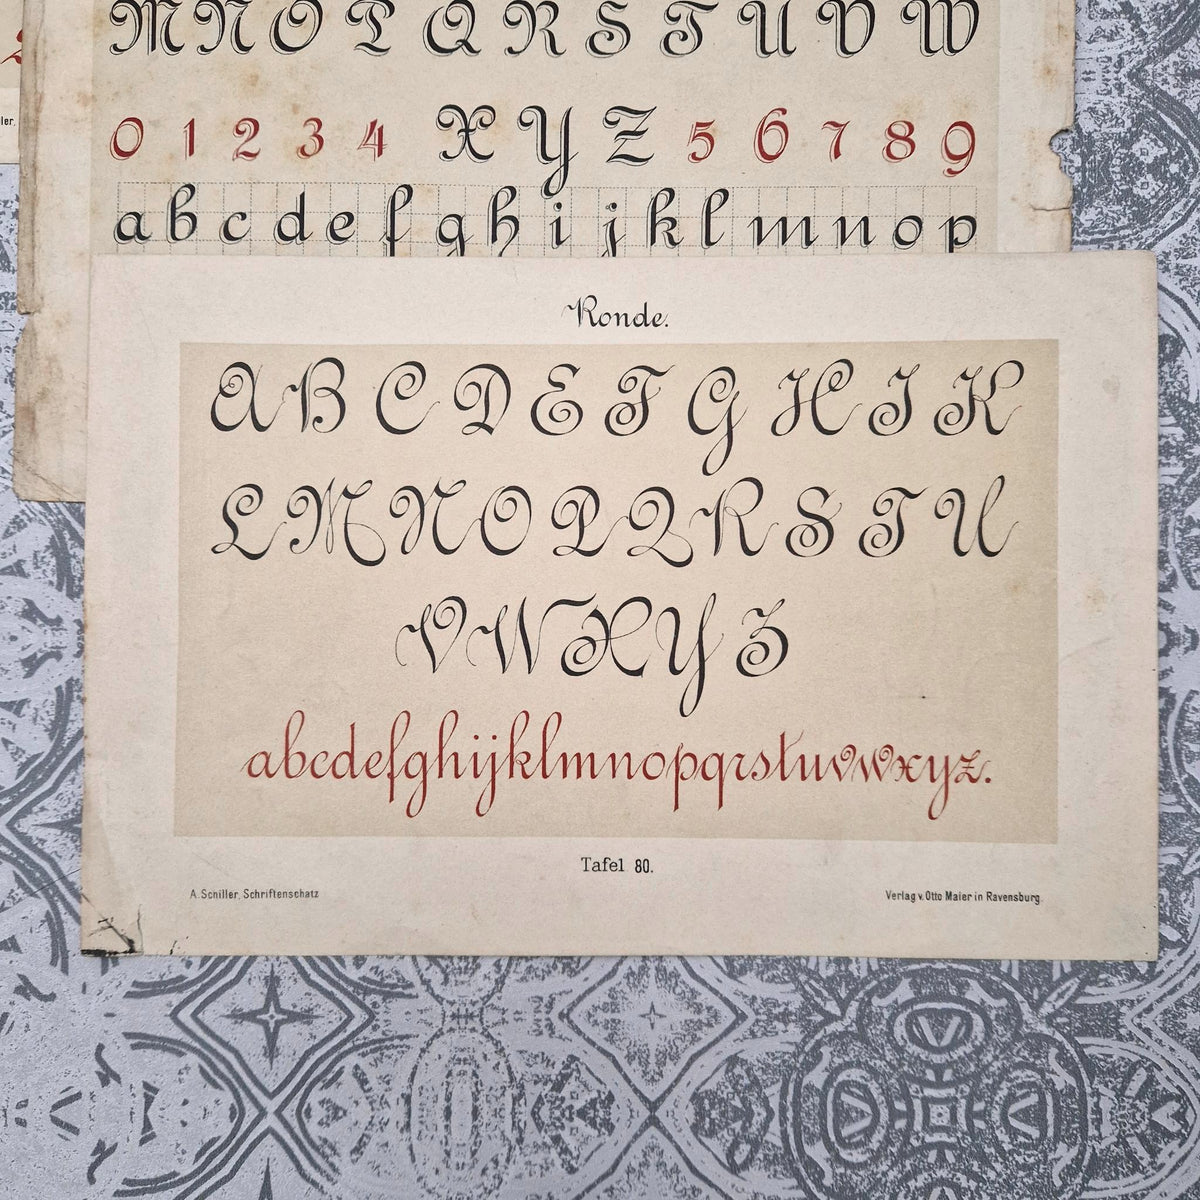 M N O P Q R S T U V W
0 1 2 3 4 X Y Z 5 6 7 8 9
a b c d e f g h i j k l m n o p
Ronde.
A B C D E F G H I K
L M N O P Q R S T U
V W X Y Z
abcdefghijklmnopqrstuvwxyz.
Tafel 80.
A. Schiller, Schriftenschatz
Verlag v. Otto Maier in Ravensburg.